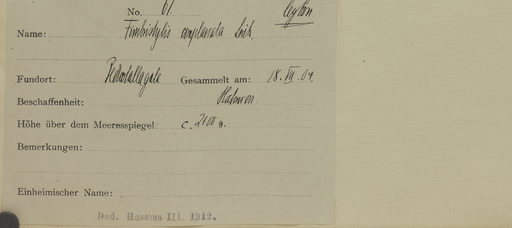 No. 61. Ceylon
Name: Fimbristylis complanata Link
Fundort: Pedrotallagala Gesammelt am: 18. VII. 04.
Beschaffenheit:
Höhe über dem Meeresspiegel: c. 2100 m.
Bemerkungen:
Einheimischer Name:
Ded. Hosseus III. 1912.